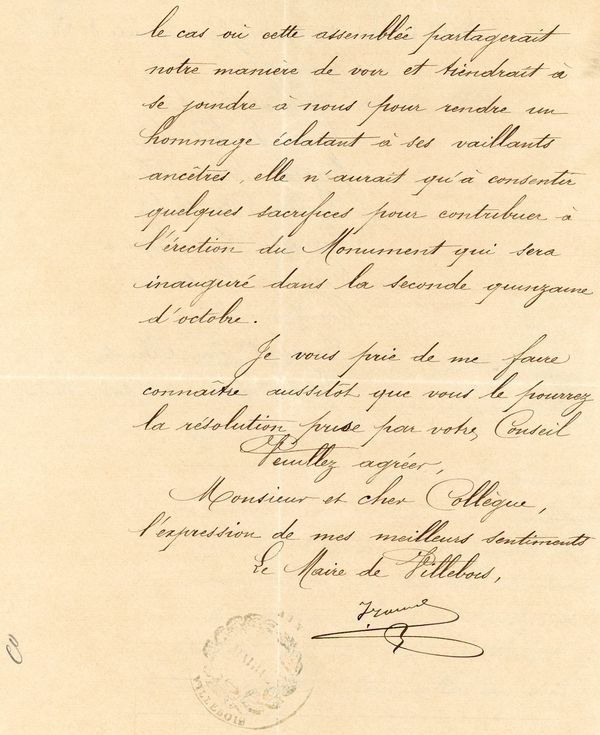 le cas où cette assemblée partagerait
notre manière de voir et tiendrait à
se joindre à nous pour rendre un
hommage éclatant à ses vaillants
ancêtres, elle n'aurait qu'à consentir
quelques sacrifices pour contribuer à
l'érection du Monument qui sera
inauguré dans la seconde quinzaine
d'octobre.
Je vous prie de me faire
connaître aussitot que vous le pourrez
la résolution prise par votre Conseil
Veuillez agréer,
Monsieur et cher Collègue,
l'expression de mes meilleurs sentiments
Le Maire de Villebois,
VILLEBOIS